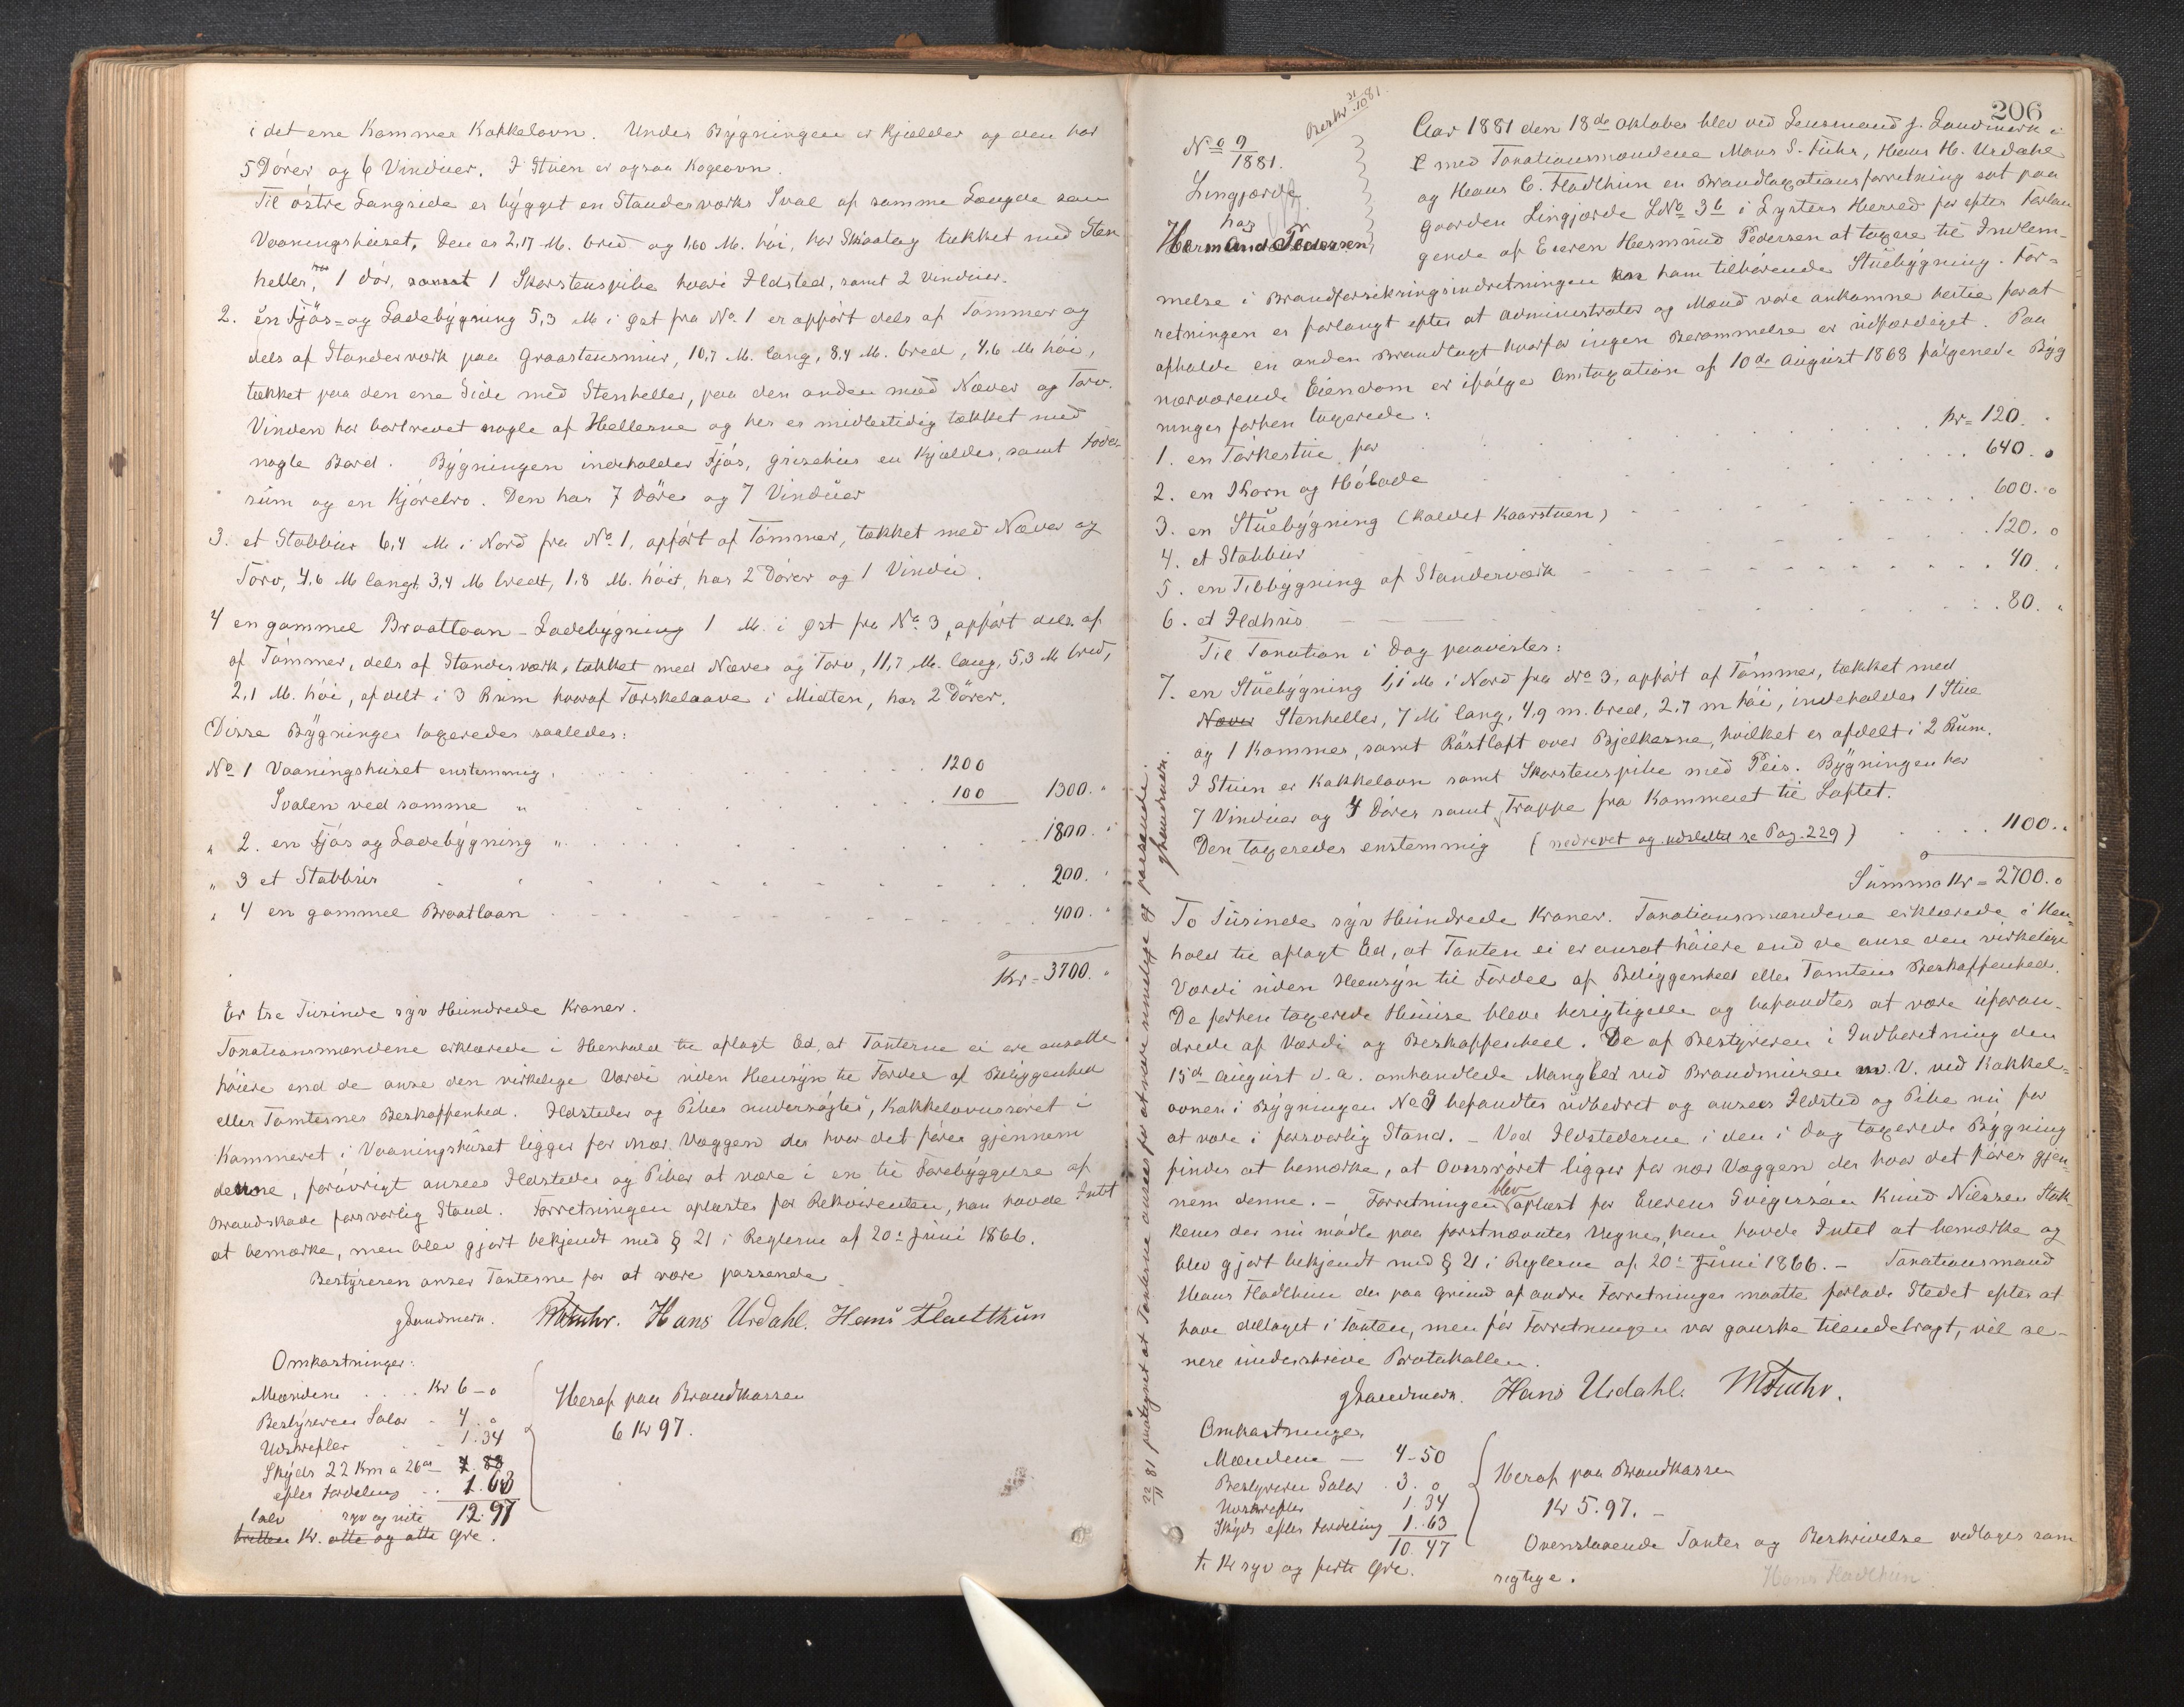 i det ene Kammer Kakkelovn. Under Bygningen er Kjælder og den har
5 Dører og 6 Vinduer. I Stuen er ogsaa Kogeovn.
Til östre Langside er bygget en Standerværks Sval af samme Længde som
Vaaningshuset. Den er 2,17 M. bred og 1,60 M. höi, har Skraatag tækket med Sten
heller, har 1 dör, samt 1 Skorstenspibe hvori Ildsted, samt 2 Vinduer.
2. En Fjös- og Ladebygning 5,3 M i Øst fra No. 1 er opfört dels af Tömmer og
dels af Standerværk paa Graastensmur, 10,7 M. lang, 8,4 M. bred, 4,6 M höi,
tækket paa den ene Side med Stenheller, paa den anden med Næver og Torv.
Vinden har bortrevet nogle af Hellerne og her er midlertidig tækket med
nogle Bord. Bygningen indeholder Fjös, grisehus en Kjælder, samt Foder-
rum og en Kjörebro. Den har 7 Döre og 7 Vinduer
3. et Stabbur 6,4 M. i Nord fra No. 1, opfört af Tömmer, tækket med Næver og
Torv, 4,6 M langt, 3,4 M bredt, 1,8 M. höit, har 2 Dörer og 1 Vindu.
4 en gammel Braatloan - Ladebygning 1 M. i Øst fra No. 3, opfört dels af
af Tömmer, dels af Standerværk, tækket med Næver og Torv, 11,7 M. lang, 5,3 M bred,
2,1 M. höi, afdelt i 3 Rum hvoraf Torskelaave i Midten, har 2 Dörer.
Disse Bygninger taxeredes saaledes:
No 1 Vaaningshuset enstemmig . . . 1200
Svalen ved samme " . . . 100 1300. "
" 2. en Fjös og Ladebygning " . . . 1800. "
" 3 et Stabbur . . . 200. "
" 4 en gammel Braatloan . . . 400. "
Kr = 3700. "
Er tre Tusinde syv Hundrede Kroner.
Taxationsmændene erklærede i Henhold til aflagt Ed, at Taxterne ei ere ansatte
höiere end de anse den virkelige Værdi uden Hensyn til Fordel af Beliggenhed
eller Tomternes Beskaffenhed. Ildsteder og Piber undersögtes, Kakkelovnsröret i
Kammeret i Vaaningshuset ligger for nær Væggen der hvor det föres gjennem
denne, forövrigt ansees Ildsteder og Piber at være i en til Forebyggelse af
Brandskade forsvarlig Stand. Forretningen oplæstes for Rekvirenten, han havde Intet
at bemærke, men blev gjort bekjendt med § 21 i Reglerne af 20de Juni 1866.
Bestyreren anser Taxterne for at være passende.
JLandmark. MSFuhr. Hans Urdahl. Hans Fladthun
Omkostninger:
Mændene . . . . Kr 6 – o
Bestyreren Salær - 4. o
Udskrefter - 1.34
Skyds 22 Km a 26 ør – 7.88
efter Fordeling . . 1.63
12.97
tolv syv og niti
tretten Kr. otte og otte Øre.
Heraf paa Brandkassen
6 Kr 97.
206
Beskr 31/10 81.
No 9/1881.
Lingjærde
has
Hermund Pedersen
Aar 1881 den 18de Oktober blev ved Lensmand J. Landmark i
med Taxationsmændene Mons S. Fuhr, Hans H. Urdahl
og Hans C. Fladthun en Brandtaxationsforretning sat paa
Gaarden Lingjærde LNo 36 i Lysters Herred for efter Forlan
gende af Eieren Hermund Pedersen at taxere til Indlem-
melse i Brandforsikringsindretningen ham tilhörende Stuebygning. For-
retningen er forlangt efter at administrator og Mænd vare ankomne hertil forat
afholde en anden Brandtaxt hvorfor ingen Berammelse er udfærdiget. Paa
nærværende Eiendom er ifølge Omtaxation af 10de August 1868 følgende Byg
ninger forhen taxerede:
1. en Törkestue for . . . Kr = 120. "
2. en Khorn og Hölade . . . 640. o
3. en Stuebygning (kaldet Kaarstuen) . . . 600. o
4. et Stabbur . . . 120. o
5. en Tilbygning af Standerværk . . . 40. "
6. et Ildhus . . . 80. "
Til Taxation i Dag paavistes:
7. en Stuebygning 1,1 M i Nord fra No 3, opfört af Tömmer, tækket med
Næver Stenheller, 7 M. lang, 4,9 m. bred, 2,7 m höi, indeholder 1 Stue
og 1 Kammer, samt Röstloft over Bjelkerne, hvilket er afdelt i 2 Rum.
I Stuen er Kakkelovn samt Skorstenspibe med Peis. Bygningen har
7 Vinduer og 4 Dörer samt Trappe fra Kammeret til Loftet.
Den taxeredes enstemmig (nedrevet og udslettet se Pag. 229) . . . 1100. "
Summa Kr = 2700. o
To Tusinde syv Hundrede Kroner. Taxationsmændene erklærede i Hen-
hold til aflagt Ed, at Taxten ei er ansat höiere end de anse den virkelige
Værdi uden Hensyn til Fordel af Beliggenhed eller Tomtens Beskaffenhed.
De forhen taxerede Huuse bleve besigtigede og befandtes at være uforan-
drede af Værdi og Beskaffenhed. De af Bestyreren i Indberetning den
15de August d. a. omhandlede Mangler ved Brandmuren m. V. ved Kakkel-
ovnen i Bygningen No 3 befandtes udbedret og ansees Ildsted og Pibe nu for
at være i forsvarlig Stand. – Ved Ildstederne i den i Dag taxerede Bygning
findes at bemærke, at Ovnsröret ligger for nær Væggen der hvor det föres gjen-
nem denne. – Forretningen blev oplæst for Eierens Svigersön Knud Nilssen Stok-
kens der nu mödte paa forstnævntes Vegne, han havde Intet at bemærke og
blev gjort bekjendt med § 21 i Reglerne af 20de Juni 1866. – Taxationsmand
Hans Fladthun der paa Grund af andre Forretninger maatte forlade Stedet efter at
have deltaget i Taxten, men för Forretningen var ganske tilendebragt, vil se-
nere underskrive Protokollen.
JLandmark. Hans Urdahl. MSFuhr.
Omkostninger
Mændene — 4 – 50
Bestyreren Salær . 3. o
Udskrefter - 1.34
Skyds efter Fordeling 1.63
10.47
ti Kr syv og firti Øre.
Heraf paa Brandkassen
Kr 5.97. –
Ovenstaaende Taxter og Beskrivelse vedtages som
rigtige. Hans Fladthun
22/11 81 paategnet at Taxterne ansees for at være rimelige og passende.
JLandmark.